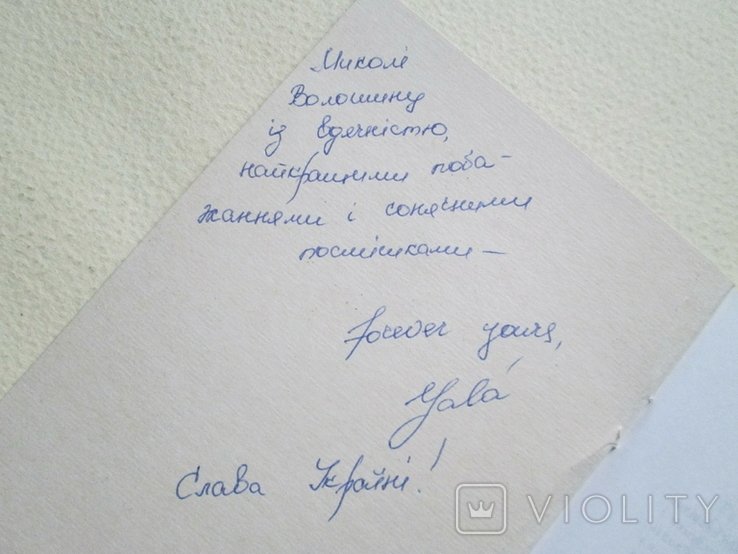 Миколі
Волошину
із вдячністю,
найкращими поба-
жаннями і сонячними
посмішками —
Forever yours,
Слава Україні!
VIOLITY